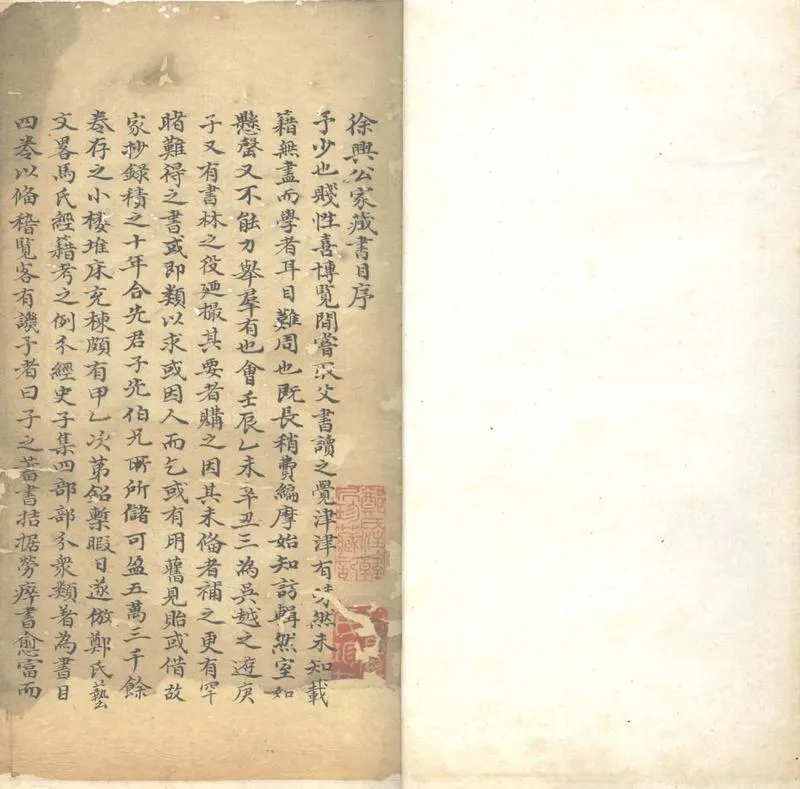 徐興公家藏書目序
予少也賤性喜博覽間嘗取父書讀之覺津津有味然未知載
籍無盡而學者耳目難周也既長稍費編摩始知訪輯然室如
懸罄又不能力舉羣有也會壬辰乙未辛丑三為吳越之遊庚
子又有書林之役廼撮其要者購之因其未俻者補之更有罕
睹難得之書或即類以求或因人而乞或有朋舊見貽或借故
家抄錄積之十年合先君子先伯兄所儲可盈五萬三千餘
卷存之小樓堆床充棟頗有甲乙次第鉛槧暇日遂倣鄭氏藝
文畧馬氏經籍考之例分經史子集四部部分衆類著為書目
四卷以俻稽覧客有譏予者曰子之蓄書拮据勞瘁書愈富而